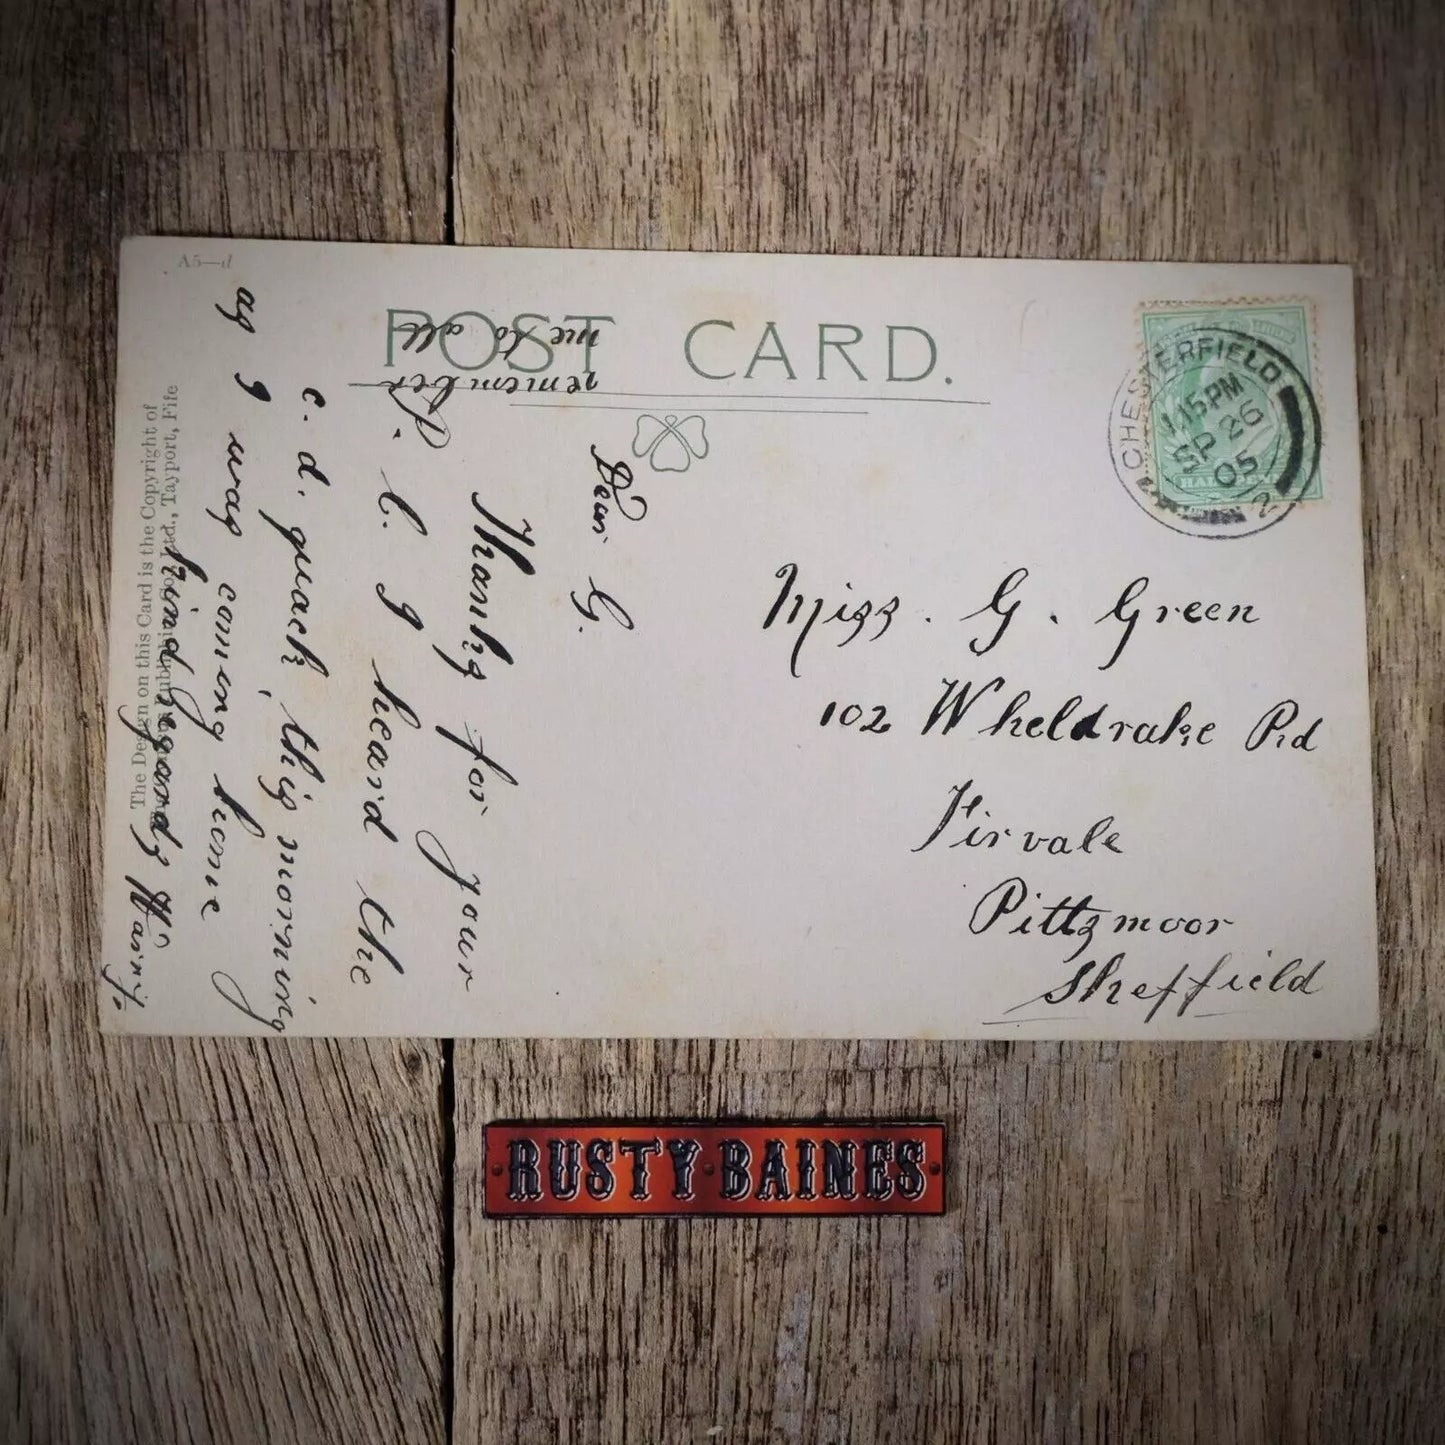 A5—d
POST CARD.
The Design on this Card is the Copyright of
Tayport, Fife
CHESTERFIELD
1.15PM
SP 26
05
2
HALF
Miss. G. Green
102 Wheldrake Rd
Firvale
Pittsmoor
Sheffield
Dear G.
Thanks for your
P. C. I heard the
c. d. quack, this morning
as I was coming home
kind regards Harry.
remember
me to all
RUSTY BAINES